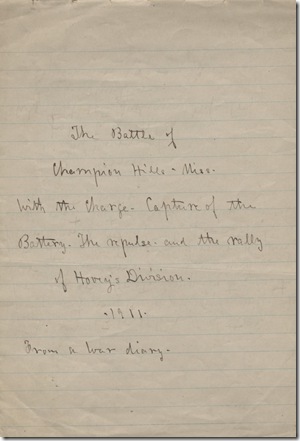 The Battle of
Champion Hills - Miss.
With the Charge - Capture of the
Battery - The repulse - and the rally
of Hovey's Division.
- 1911 -
From a War diary -